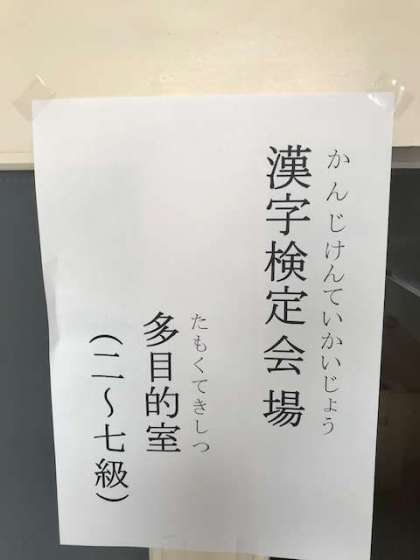 かんじけんていかいじょう
漢字検定会場
たもくてきしつ
多目的室
（二～七級）